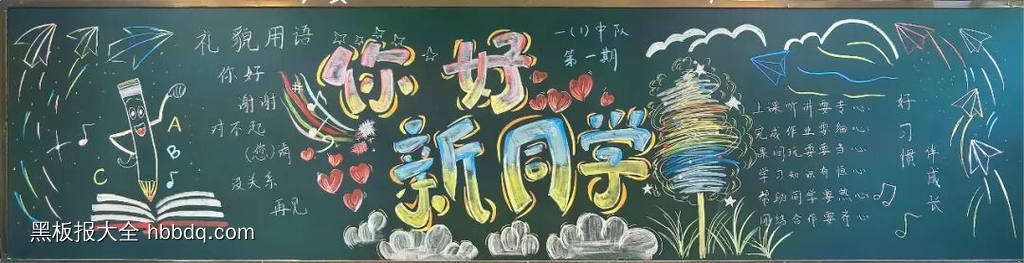 礼貌用语
你好
谢谢
对不起
(您)请
没关系
再见
A
B
C
你好
新同学
一(1)中队
第一期
上课听讲要专心
完成作业要细心
课间玩耍要当心
学习知识有恒心
帮助同学要热心
团结合作要齐心
好习惯
伴成长
黑板报大全 hbbdq.com